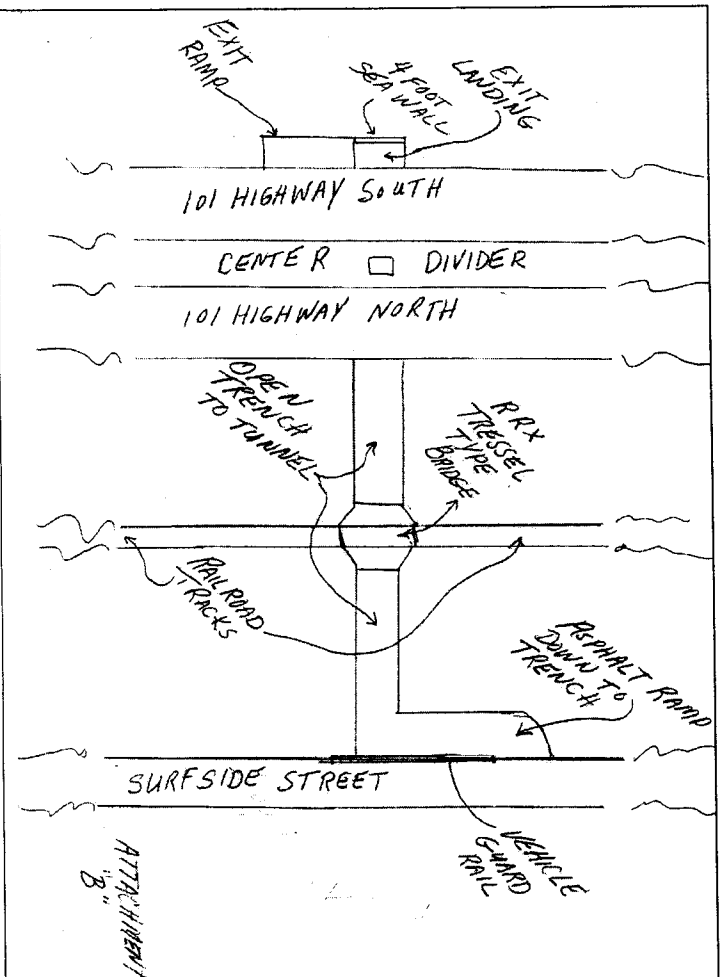 EXIT
RAMP
4 FOOT
SEA WALL
EXIT
LANDING
101 HIGHWAY SOUTH
CENTER DIVIDER
101 HIGHWAY NORTH
OPEN
TRENCH
TO TUNNEL
RRX
TRESSEL
TYPE
BRIDGE
RAILROAD
TRACKS
ASPHALT RAMP
DOWN TO
TRENCH
SURFSIDE STREET
VEHICLE
GUARD
RAIL
ATTACHMENT
"B"